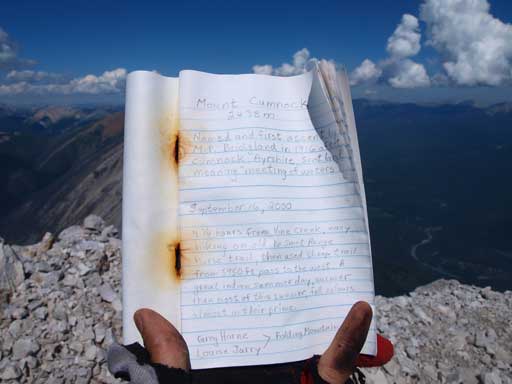 Mount Cumnock
2438m
Named and first ascent
M.P. Bridgland in 1916
cumnock" Ayrshire, Scot
meaning "meeting of waters
September 16, 2000
4 ½ hours from Vine Creek, easy
hiking on old De Smet Range
horse trail, then used sheep trail
from 5950 ft pass to the west. A
great indian summer day, warmer
than most of this summer, fall colours
almost in their prime.
Garry Horne
Louise Jarry > Folding Mountain